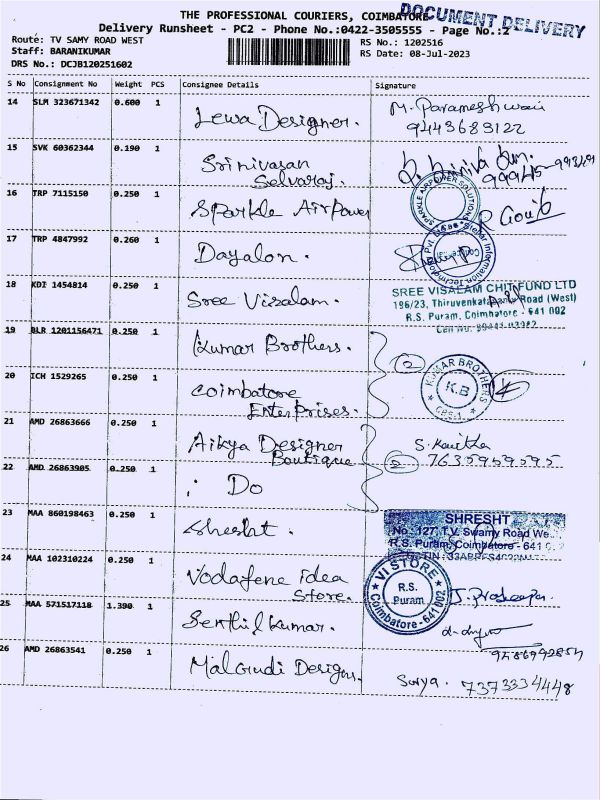 THE PROFESSIONAL COURIERS, COIMBATORE
DOCUMENT DELIVERY
Delivery Runsheet - PC2 - Phone No.:0422-3505555 - Page No.:2
Route: TV SAMY ROAD WEST
RS No.: 1202516
Staff: BARANIKUMAR
RS Date: 08-Jul-2023
DRS No.: DCJB120251602
S No Consignment No Weight PCS Consignee Details Signature
14 SLM 323671342 0.600 1 Lewa Designer. M. Parameshwari
9443689122
15 SVK 60362344 0.190 1 Srinivasan
Selvaraj.
16 TRP 7115150 0.250 1 Sparkle AirPower
SPARKLE AIRPOWER SOLUTIONS
17 TRP 4847992 0.260 1 Dayalon.
18 KDI 1454814 0.250 1 Sree Visalam.
SREE VISALAM CHIT FUND LTD
196/23, Thiruvenkatasamy Road (West)
R.S. Puram, Coimbatore - 641 002
19 BLR 1201156471 0.250 1 Kumar Brothers. 2
KUMAR BROTHERS
K.B
CBE-1
20 ICH 1529265 0.250 1 Coimbatore
Enterprises.
21 AMD 26863666 0.250 1 Aikya Designer
Boutique
S. Kavitha
2 7635959595
22 AMD 26863905 0.250 1 Do
23 MAA 860198463 0.250 1 Shresht.
SHRESHT
No. 127, T.V. Swamy Road We
R.S. Puram, Coimbatore - 641
24 MAA 102310224 0.250 1 Vodafone idea
Store.
VI STORE
R.S.
Puram
Coimbatore - 641 002
25 MAA 571517118 1.390 1 Senthilkumar.
9486992854
26 AMD 26863541 0.250 1 Malgudi Designs.
Surya. 7373334448